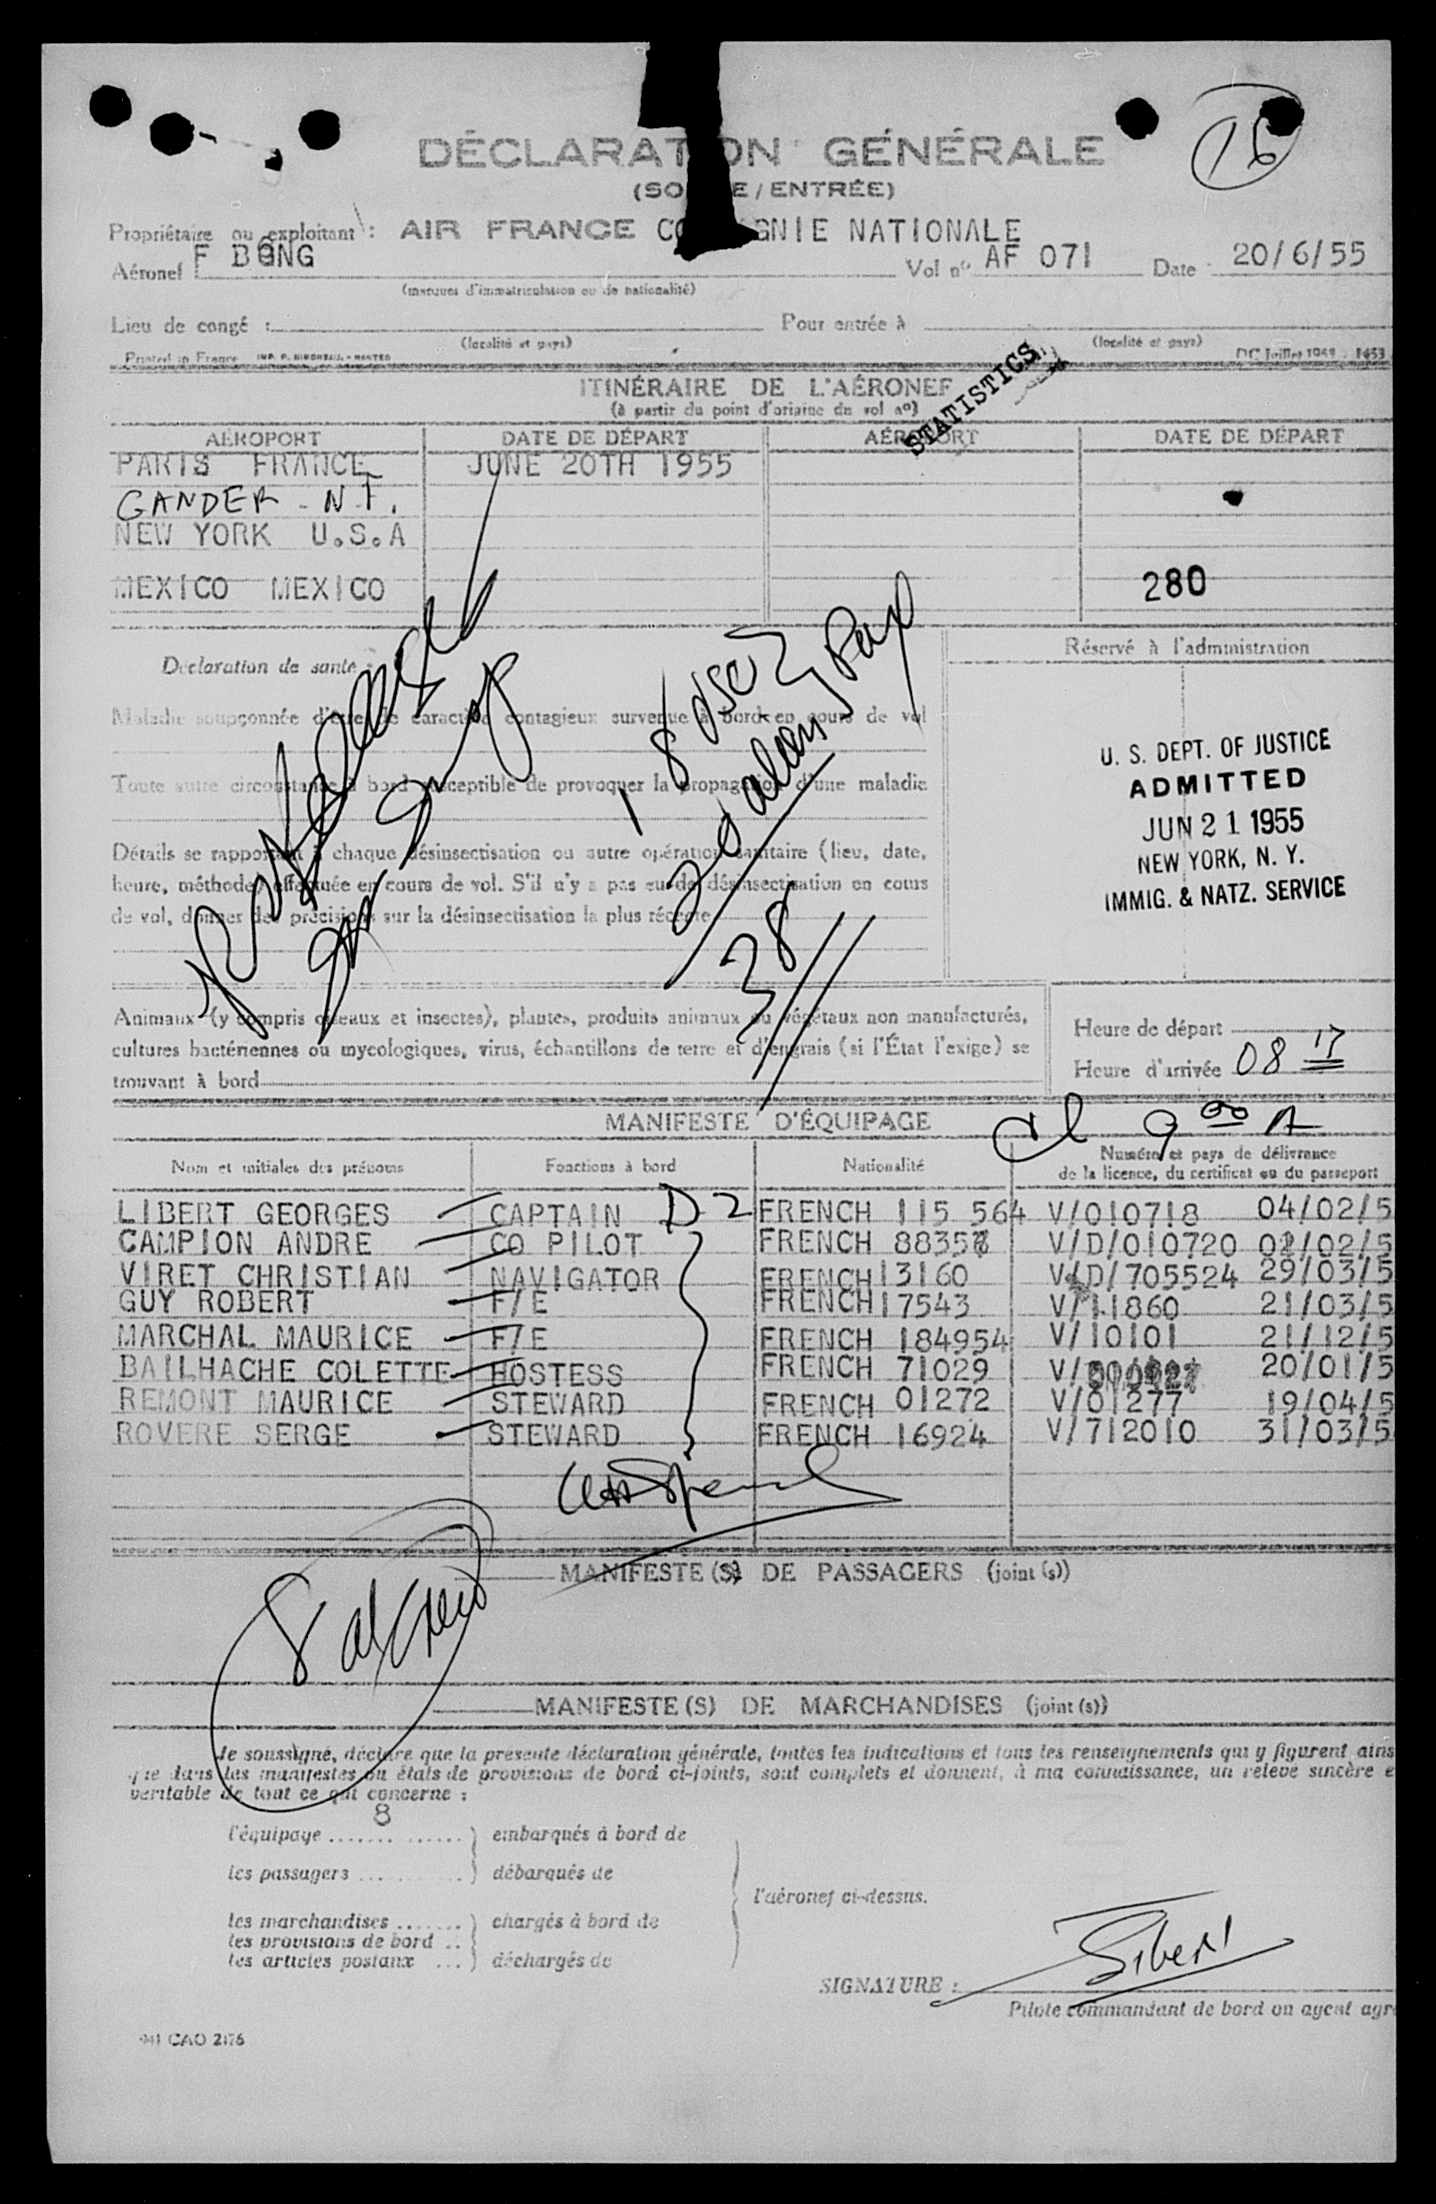 16
DÉCLARAT ON GÉNÉRALE
(SO E / ENTRÉE)
Propriétaire ou exploitant : AIR FRANCE CO GNIE NATIONALE
Aéronef F Vol nº AF 071 Date 20/6/55
(marques d'immatriculation ou de nationalité)
Lieu de congé : Pour entrée à
(localité et pays) (localité et pays)
Printed in France
STATISTICS
ITINÉRAIRE DE L'AÉRONEF
(à partir du point d'origine du vol nº)
AÉROPORT DATE DE DÉPART AÉROPORT DATE DE DÉPART
PARIS FRANCE JUNE 20TH 1955
GANDER - N.F.
NEW YORK U.S.A
MEXICO MEXICO 280
Déclaration de santé : Réservé à l'administration
Maladie soupçonnée d'être de caractère contagieux survenue à bord en cours de vol
Toute autre circonstance à bord susceptible de provoquer la propagation d'une maladie
Détails se rapportant à chaque désinsectisation ou autre opération sanitaire (lieu, date,
heure, méthode) effectuée en cours de vol. S'il n'y a pas eu de désinsectisation en cours
de vol, donner des précisions sur la désinsectisation la plus récente
18 USC
20 alien
Pax
38
U. S. DEPT. OF JUSTICE
ADMITTED
JUN 21 1955
NEW YORK, N. Y.
IMMIG. & NATZ. SERVICE
Animaux (y compris oiseaux et insectes), plantes, produits animaux ou végétaux non manufacturés,
cultures bactériennes ou mycologiques, virus, échantillons de terre et d'engrais (si l'État l'exige) se
trouvant à bord
Heure de départ
Heure d'arrivée 08 17
MANIFESTE D'ÉQUIPAGE
9 00 A
Nom et initiales des prénoms Fonctions à bord Nationalité Numéro et pays de délivrance
de la licence, du certificat ou du passeport
LIBERT GEORGES CAPTAIN D2 FRENCH 115 564 V/010718 04/02/5
CAMPION ANDRE CO PILOT FRENCH V/D/010720 02/02/5
VIRET CHRISTIAN NAVIGATOR FRENCH 13160 V/D/705524 29/03/5
GUY ROBERT F/E FRENCH 17543 V/11860 21/03/5
MARCHAL MAURICE F/E FRENCH 184954 V/10101 21/12/5
BAILHACHE COLETTE HOSTESS FRENCH 71029 V/ 20/01/5
REMONT MAURICE STEWARD FRENCH 01272 V/01277 19/04/5
ROVERE SERGE STEWARD FRENCH 16924 V/712010 31/03/5
MANIFESTE (S) DE PASSAGERS (joint (s))
8 al Crew
MANIFESTE (S) DE MARCHANDISES (joint (s))
Je soussigné, déclare que la présente déclaration générale, toutes les indications et tous les renseignements qui y figurent ains
que dans les manifestes ou états de provisions de bord ci-joints, sont complets et donnent, à ma connaissance, un relevé sincère e
véritable de tout ce qui concerne :
l'équipage ....... 8 ...... ) embarqués à bord de
les passagers ........... ) débarqués de
l'aéronef ci-dessus.
les marchandises ....... ) chargés à bord de
les provisions de bord ..
les articles postaux ... ) déchargés de
SIGNATURE : Libert
Pilote commandant de bord ou agent agr
941 CAO 2176